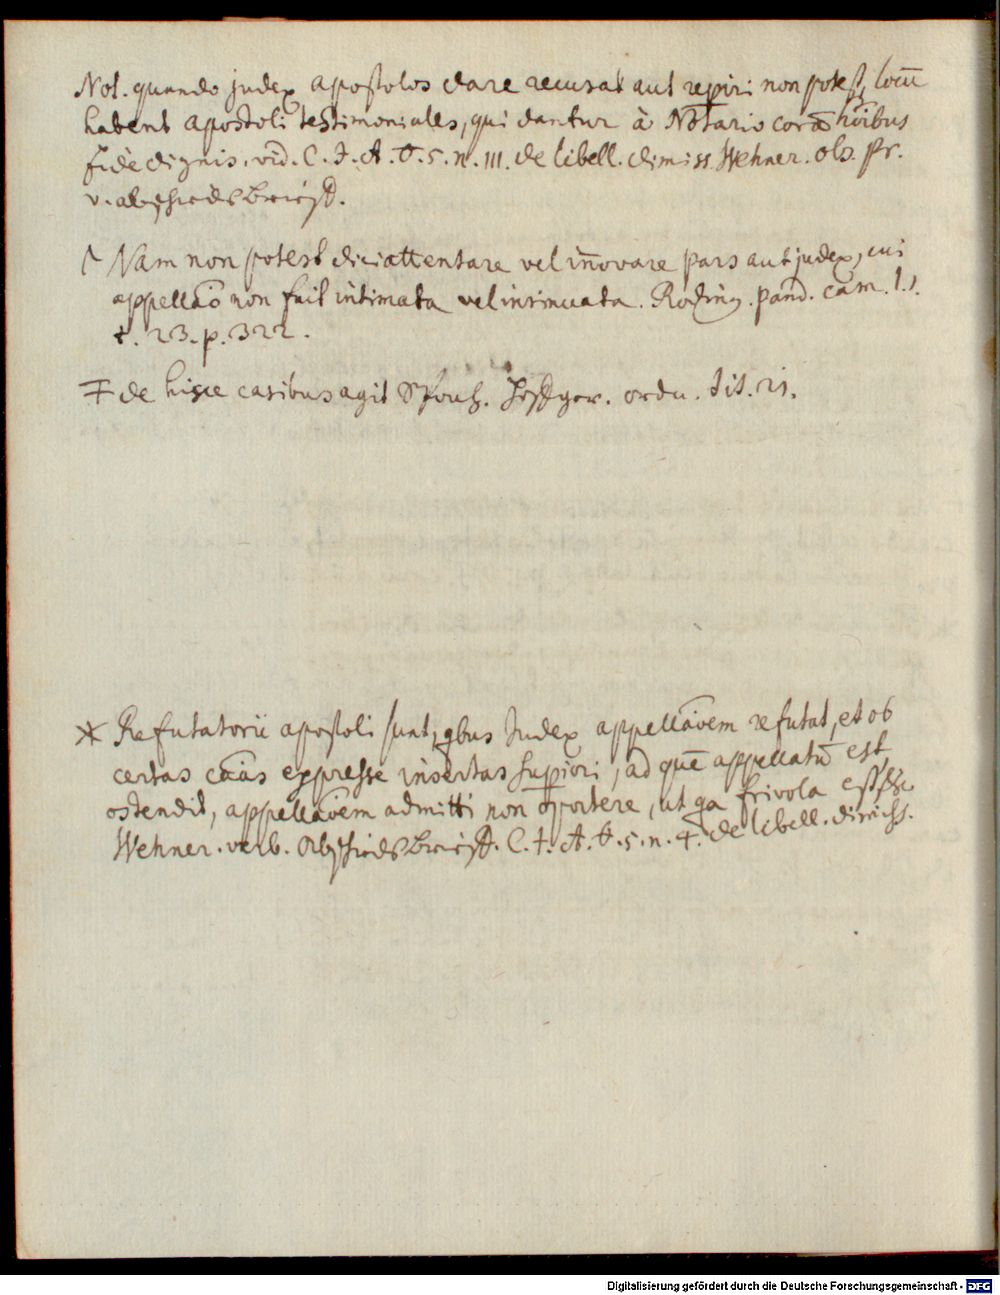 Not. quando judex apostolos dare recusat aut repiri non potest, locū
habent apostoli testimoniales, qui dantur à Notario corā hōibus
fide dignis. vid. C. J. A. t. 5. n. 111. de libell. dimiss. Wehner. obs. pr.
v. abschiedsbrieff.
Nam non potest dici attentare vel iñovare pars aut judex, cui
appellāo non fuit intimata vel insinuata. Roding. pand. cam. l. 1.
t. 23. p. 322.
de hisce casibus agit Hofger. ordn. tit. 21.
* Refutatorii apostoli sunt, qbus Judex appellāōem refutat, et ob
certas cāas expresse insertas supiori, ad quē appellatū est,
ostendit, appellāōem admitti non oportere, ut qa frivola
Wehner. verb. Abschiedsbrieff. C. J. A. t. 5. n. 4. de libell. dimiss.
Digitalisierung gefördert durch die Deutsche Forschungsgemeinschaft - DFG